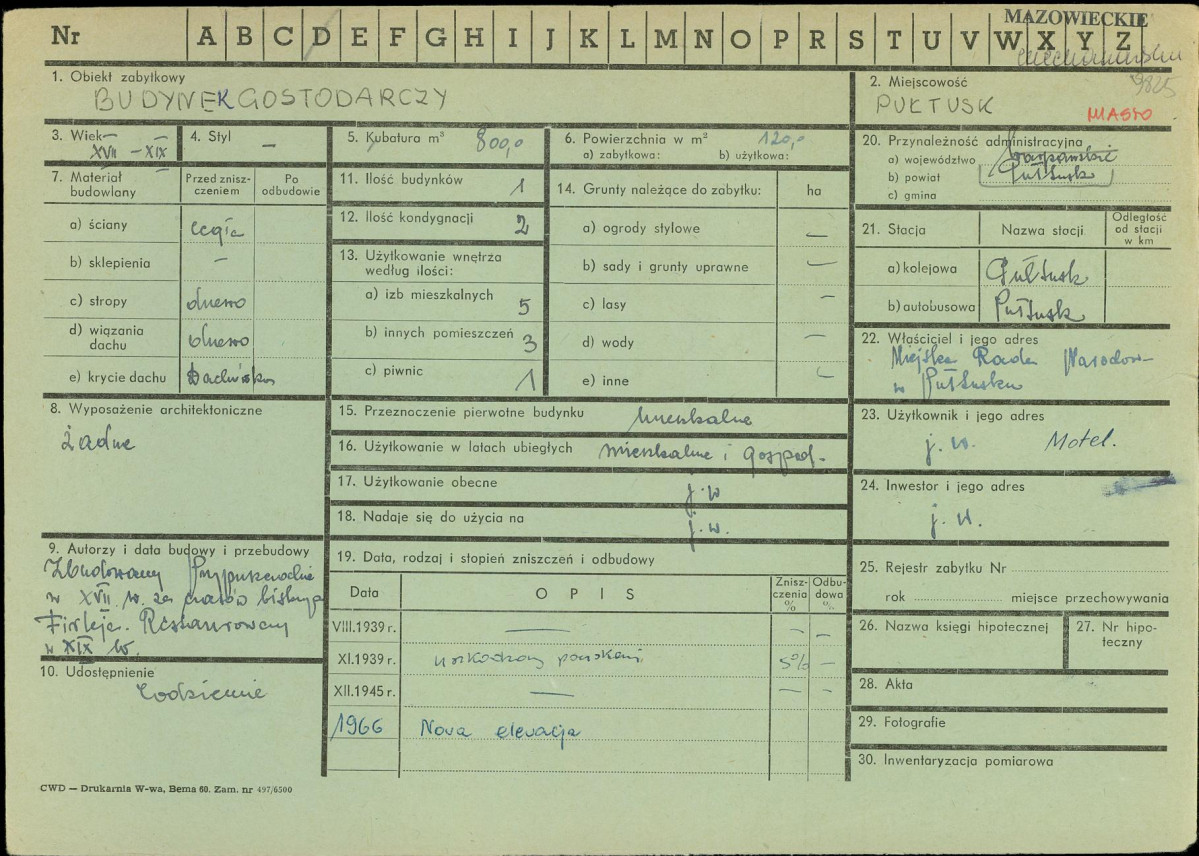 MAZOWIECKIE
Nr A B C D E F G H I J K L M N O P R S T U V W X Y Z
9825
1. Obiekt zabytkowy
BUDYNEK GOSTODARCZY
2. Miejscowość
PUŁTUSK MIASTO
3. Wiek
XVII – XIX
4. Styl
–
5. Kubatura m³ 800,0
6. Powierzchnia w m² 120,-
a) zabytkowa: b) użytkowa:
20. Przynależność administracyjna
a) województwo
b) powiat Pułtusk
c) gmina
7. Materiał budowlany
Przed zniszczeniem
Po odbudowie
a) ściany cegła
b) sklepienia –
c) stropy drewno
d) wiązania dachu drewno
e) krycie dachu
11. Ilość budynków 1
12. Ilość kondygnacji 2
13. Użytkowanie wnętrza
według ilości:
a) izb mieszkalnych 5
b) innych pomieszczeń 3
c) piwnic 1
14. Grunty należące do zabytku: ha
a) ogrody stylowe –
b) sady i grunty uprawne –
c) lasy –
d) wody –
e) inne –
21. Stacja
Nazwa stacji
Odległość
od stacji
w km
a) kolejowa Pułtusk
b) autobusowa Pułtusk
22. Właściciel i jego adres
Miejska Rada Narodow-
w Pułtusku
8. Wyposażenie architektoniczne
żadne
15. Przeznaczenie pierwotne budynku mieszkalne
16. Użytkowanie w latach ubiegłych mieszkalne i gospod.
17. Użytkowanie obecne j.w
18. Nadaje się do użycia na j.w.
23. Użytkownik i jego adres
j. w. Motel.
24. Inwestor i jego adres
j. w.
9. Autorzy i data budowy i przebudowy
Zbudowany Przypuszczalnie
w XVII w. za czasów biskupa
Firleja. Restaurowany
w XIX w.
10. Udostępnienie
codziennie
19. Data, rodzaj i stopień zniszczeń i odbudowy
Data
OPIS
Znisz-
czenia
%
Odbu-
dowa
%
VIII.1939 r. – – –
XI.1939 r. uszkodzony pociskami 5% –
XII.1945 r. – – –
1966 Nova elewacja
25. Rejestr zabytku Nr
rok miejsce przechowywania
26. Nazwa księgi hipotecznej
27. Nr hipo-
teczny
28. Akta
29. Fotografie
30. Inwentaryzacja pomiarowa
CWD — Drukarnia W-wa, Bema 60. Zam. nr 497/6500